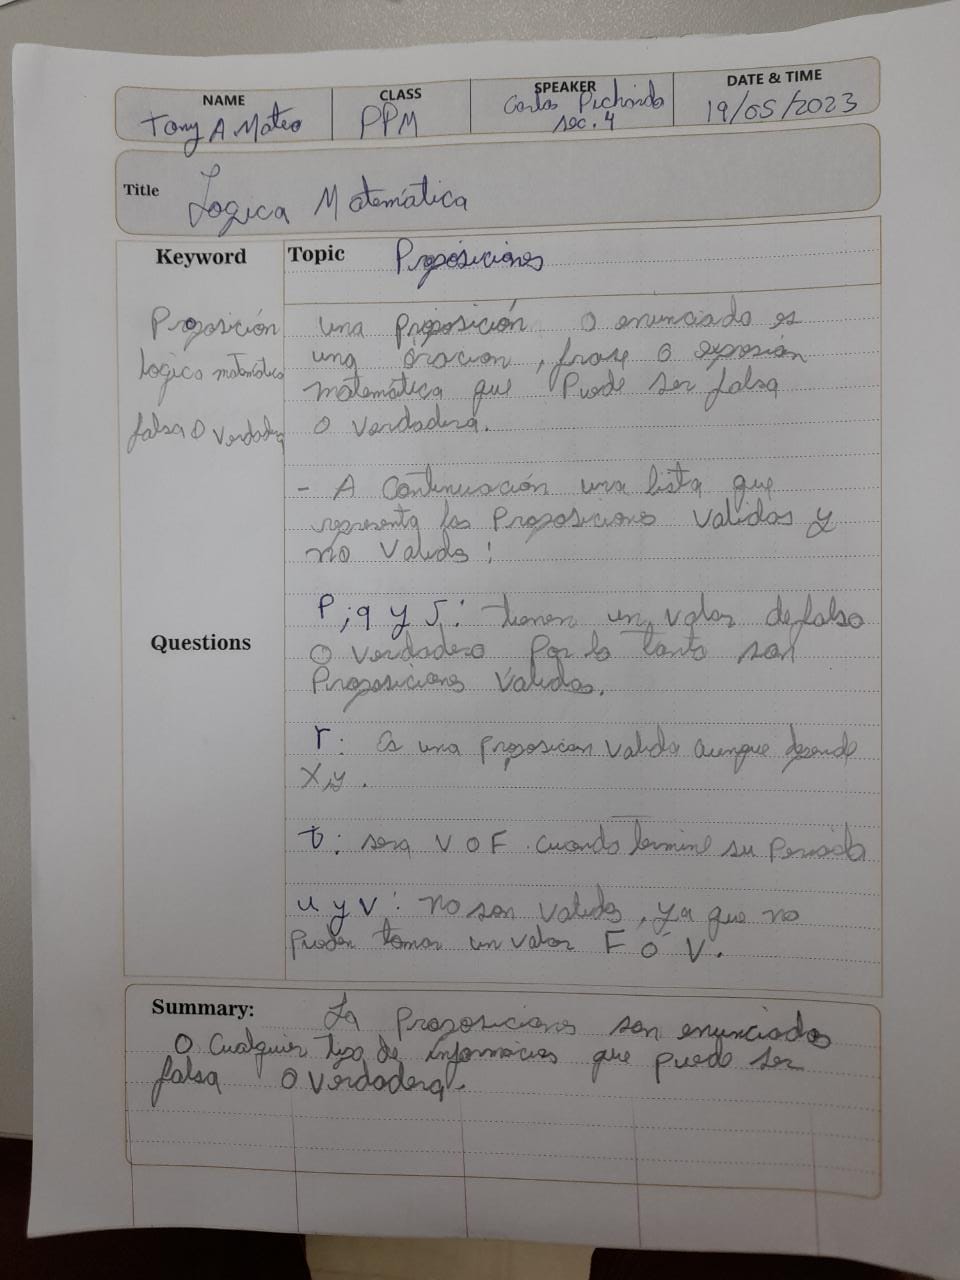 NAME CLASS SPEAKER DATE & TIME
Tony A Mateo PPM Carlos Pichardo 19/05/2023
sec. 4
Title Logica Matemática
Keyword Topic Proposiciones
Proposición
logico matemática
falsa o verdadera
una proposición o enunciado es
una oracion, frase o expresión
matemática que Puede ser falsa
o verdadera.
- A Continuación una lista que
representa las Proposiciones validas y
no valida:
Questions
P, q y s: tienen un valor de falso
o verdadero Por lo tanto son
Proposiciones validas.
r: es una proposicion valida aunque depende
x,y.
t: sera V o F cuando termine su Periodo
u y v: no son validas, ya que no
pueden tomar un valor F ó V.
Summary: La proposiciones son enunciados
o cualquier tipo de que puede ser
falsa o verdadera.